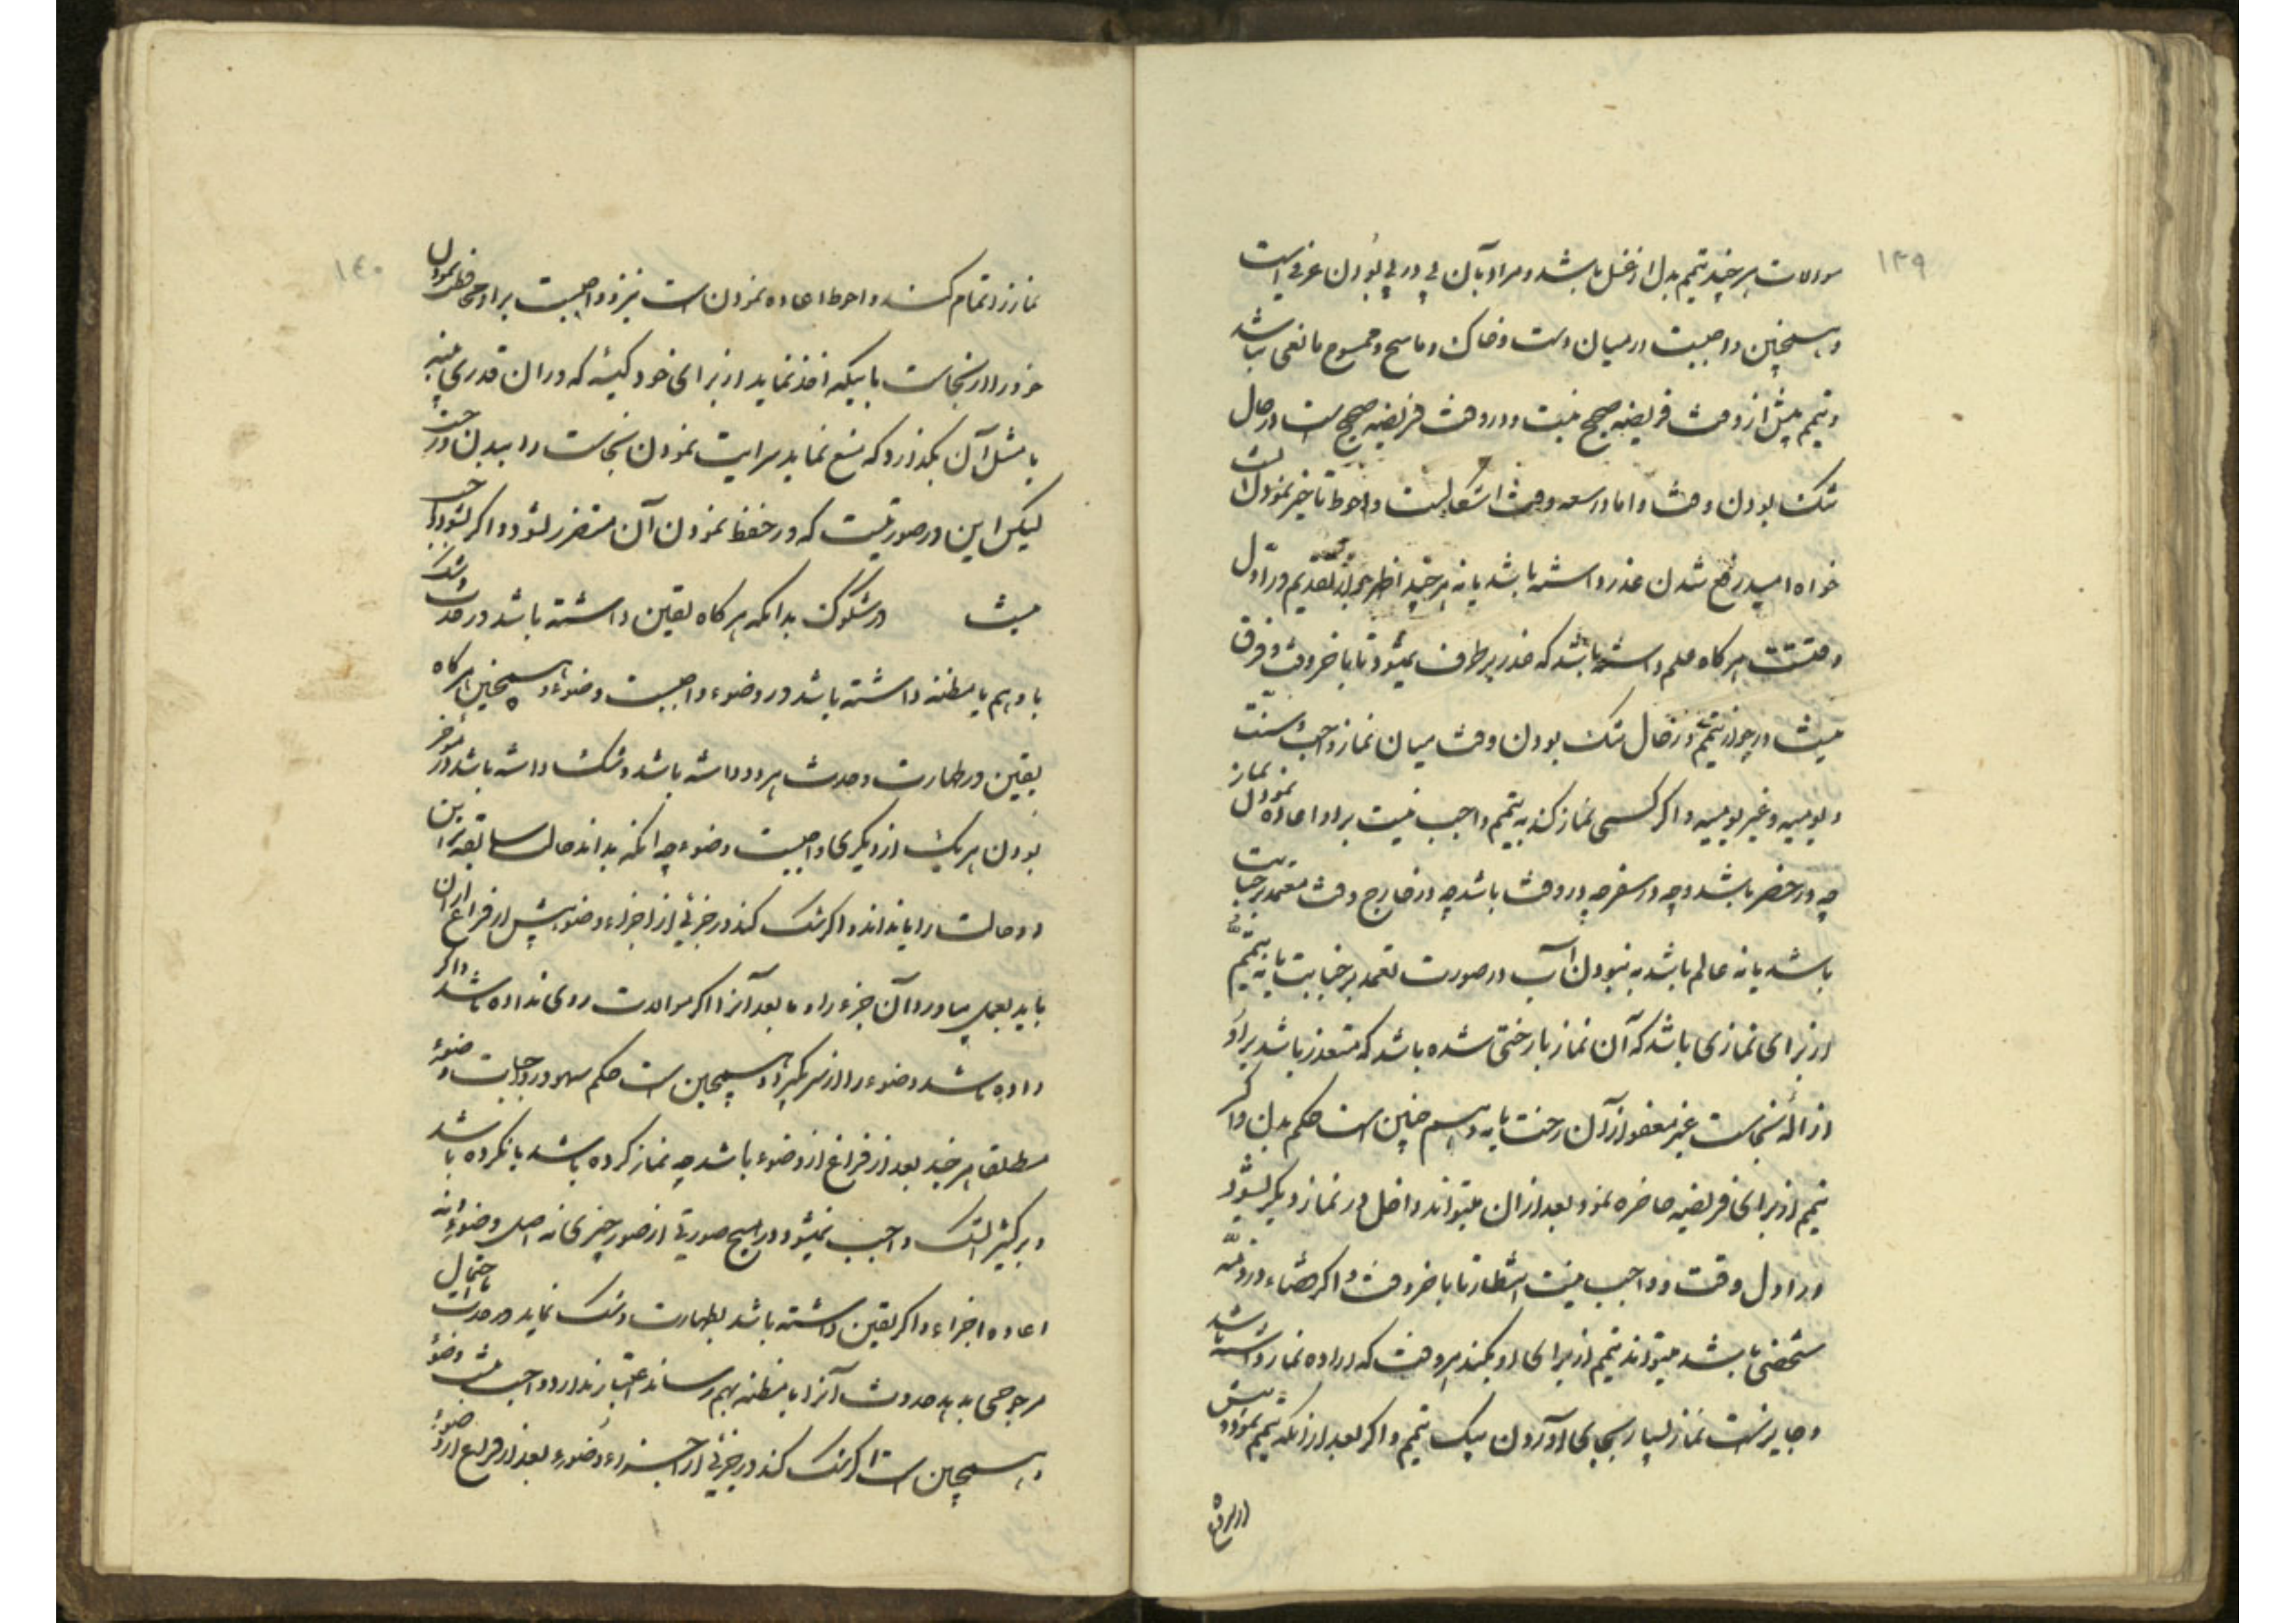 ۱۳۹
موالات هر چند تیمم بدل از غسل باشد و مراد بآن پی در پی بودن عرفی است
و همچنین واجبست در میان دست و خاک و ماسح و ممسوح مانعی نباشد
و تیمم پیش از وقت فریضه صحیح نیست و در وقت فریضه صحیح است در حال
تنک بودن وقت و اما در سعه وقت اشکالست و احوط تاخیر نمودن است
خواه امید رفع شدن عذر داشته باشد یا نه هر چند اظهر جواز تقدیم در اول
وقتست هر کاه علم داشته باشد که عذر بر طرف نمیشود تا باخر وقت و فرق
نیست در جواز تیمم در حال تنک بودن وقت میان نماز واجب و سنت
و یومیه و غیر یومیه و اکر کسی نماز کند به تیمم واجب نیست بر او اعاده نمودن نماز
چه در حضر باشد و چه در سفر چه در وقت باشد چه در خارج وقت متعمد بر جنابت
باشد یا نه عالم باشد به نبودن آب در صورت تعمد بر جنابت یا نه تیمم
از برای نمازی باشد که آن نماز با رختی شده باشد که متعذر باشد بر او
ازاله نجاست غیر معفو از آن رخت یا نه و همچنین است حکم بدن و اکر
تیمم از برای فریضه حاضره نمود بعد از ان میتواند داخل در نماز دیکر بشود
در اول وقت و واجب نیست انتظار تا باخر وقت و اکر قضاء در ذمه
شخصی باشد میتواند تیمم از برای او بکند هر وقت که اراده نماز داشته باشد
و جایز است نماز بسیار بجای آوردن بیک تیمم و اکر بعد از آنکه تیمم نمود پیش
۱۴۰
نماز را تمام کند و احوط اعاده نمودن است نیز و واجبست بر او محافظ نمودن
خود را از نجاست باینکه اخذ نماید از برای خود کیسه که در ان قدری پنبه
یا مثل آن بکذارد که منع نماید سرایت نمودن نجاست را ببدن و رخت
لیکن این در صورتیست که در حفظ نمودن آن متضرر نشود و اکر بشود واجب
نیست در شکوک بدانکه هر کاه یقین داشته باشد در حدث و شک
یا وهم یا مظنه داشته باشد در وضوء واجبست وضوء و همچنین هر کاه
یقین در طهارت و حدث هر دو داشته باشد و شک داشته باشد در مؤخر
بودن هر یک از دیکری واجبست وضوء چه انکه بداند حالت سابقه بر این
دو حالت را یا نداند و اکر شک کند در جزئی از اجزاء وضو پیش از فراغ از ان
باید بعمل بیاورد آن جزء را و ما بعد آنرا اکر موالات روی نداده باشد و اکر
داده باشد وضوء را از سر بکیرد و همچنین است حکم سهو در واجبات وضوء
مطلقا هر چند بعد از فراغ از وضوء باشد چه نماز کرده باشد یا نکرده باشد
و بر کثیر الشک واجب نمیشود در هیچ صورتی از صور چیزی نه اصل وضوء و نه
اعاده اجزاء و اکر یقین داشته باشد بطهارت و شک نماید در حدث یا احتمال
مرجوحی بدهد حدوث آنرا یا مظنه بهم رساند اعتبار ندارد و واجب نیست وضوء
و همچنین است اکر شک کند در جزئی از اجزاء وضوء بعد از فراغ از وضوء